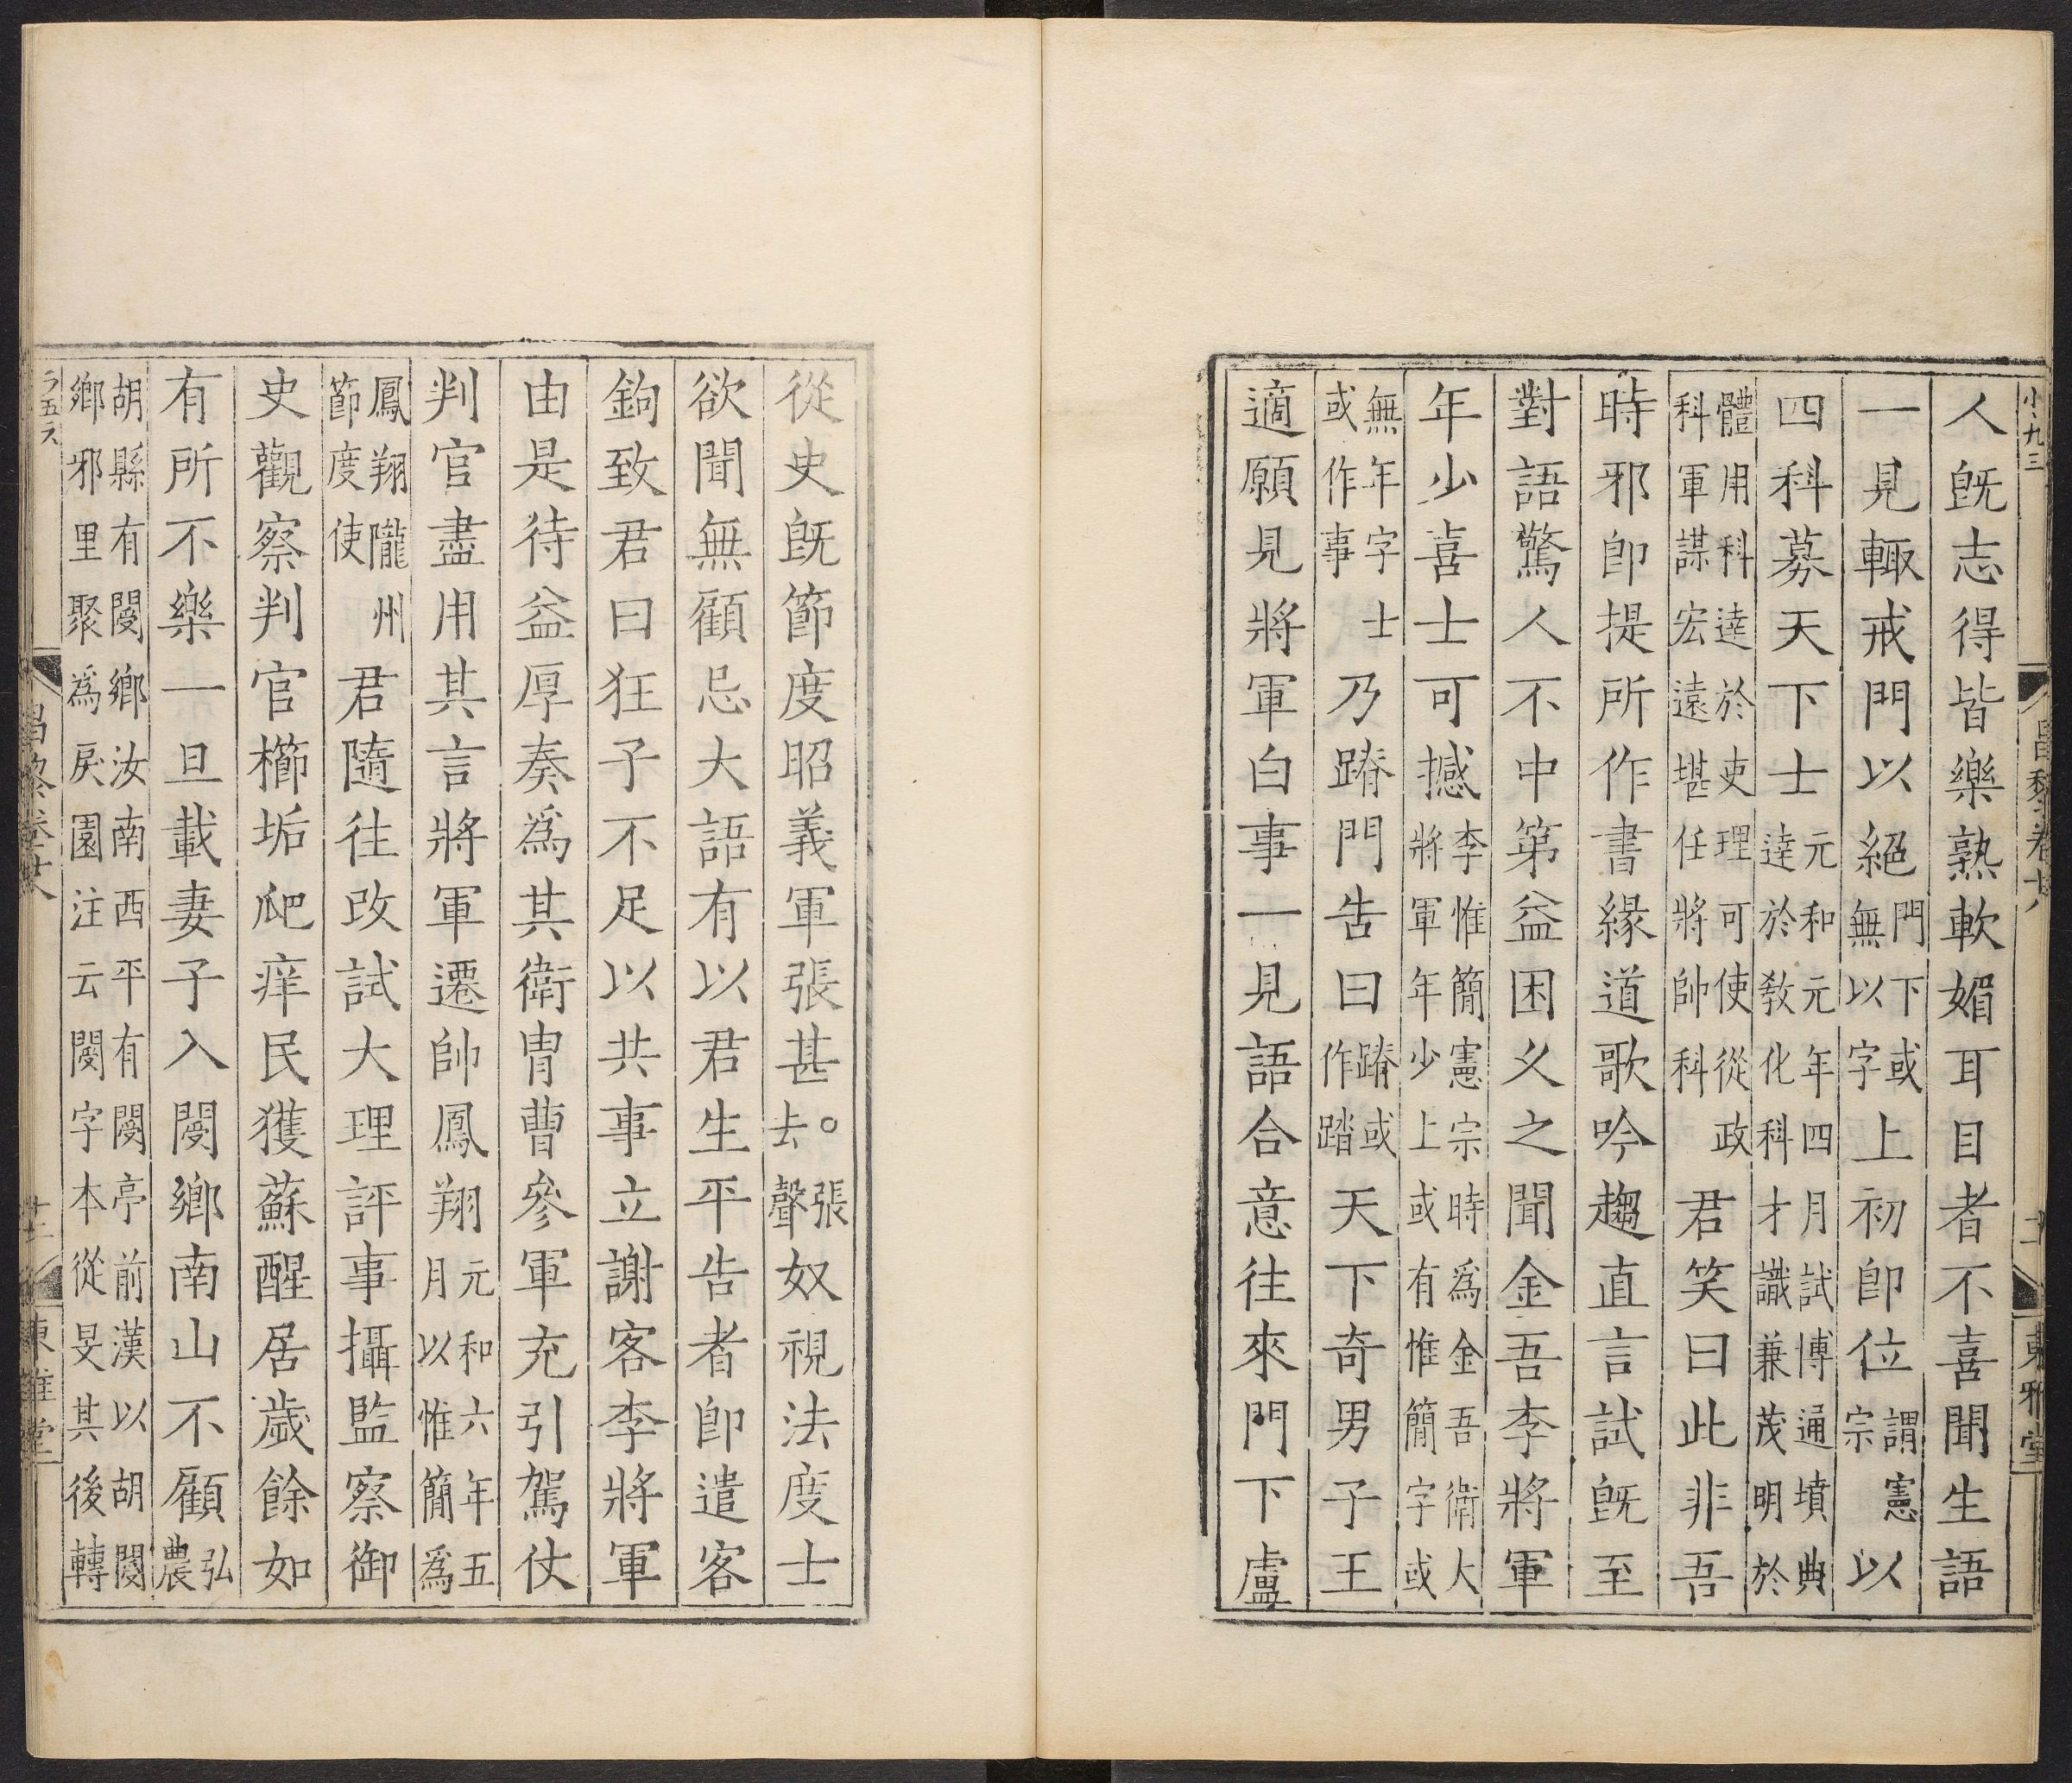 小九三
昌黎卷廿八
十二
東雅堂
人既志得皆樂熟軟媚耳目者不喜聞生語
一見輒戒門以絕門下或無以字上初即位謂憲宗以
四科募天下士元和元年四月試博通墳典達於教化科才識兼茂明於
體用科達於吏理可使從政科軍謀宏遠堪任將帥科君笑曰此非吾
時邪即提所作書緣道歌吟趨直言試既至
對語驚人不中第益困久之聞金吾李將軍
年少喜士可撼李惟簡憲宗時為金吾衛大將軍年少上或有惟簡字或
無年字士或作事乃蹐門告曰蹐或作踏天下奇男子王
適願見將軍白事一見語合意往來門下盧
從史既節度昭義軍張甚。去聲張奴視法度士
欲聞無顧忌大語有以君生平告者即遣客
鉤致君曰狂子不足以共事立謝客李將軍
由是待益厚奏為其衛冑曹參軍充引駕仗
判官盡用其言將軍遷帥鳳翔元和六年五月以惟簡為
鳳翔隴州節度使君隨往改試大理評事攝監察御
史觀察判官櫛垢爬痒民獲蘇醒居歲餘如
有所不樂一旦載妻子入閿鄉南山不顧弘農
胡縣有閿鄉汝南西平有閿亭前漢以胡閿鄉邪里聚為戾園注云閿字本從旻其後轉
昌黎卷廿八
東雅堂